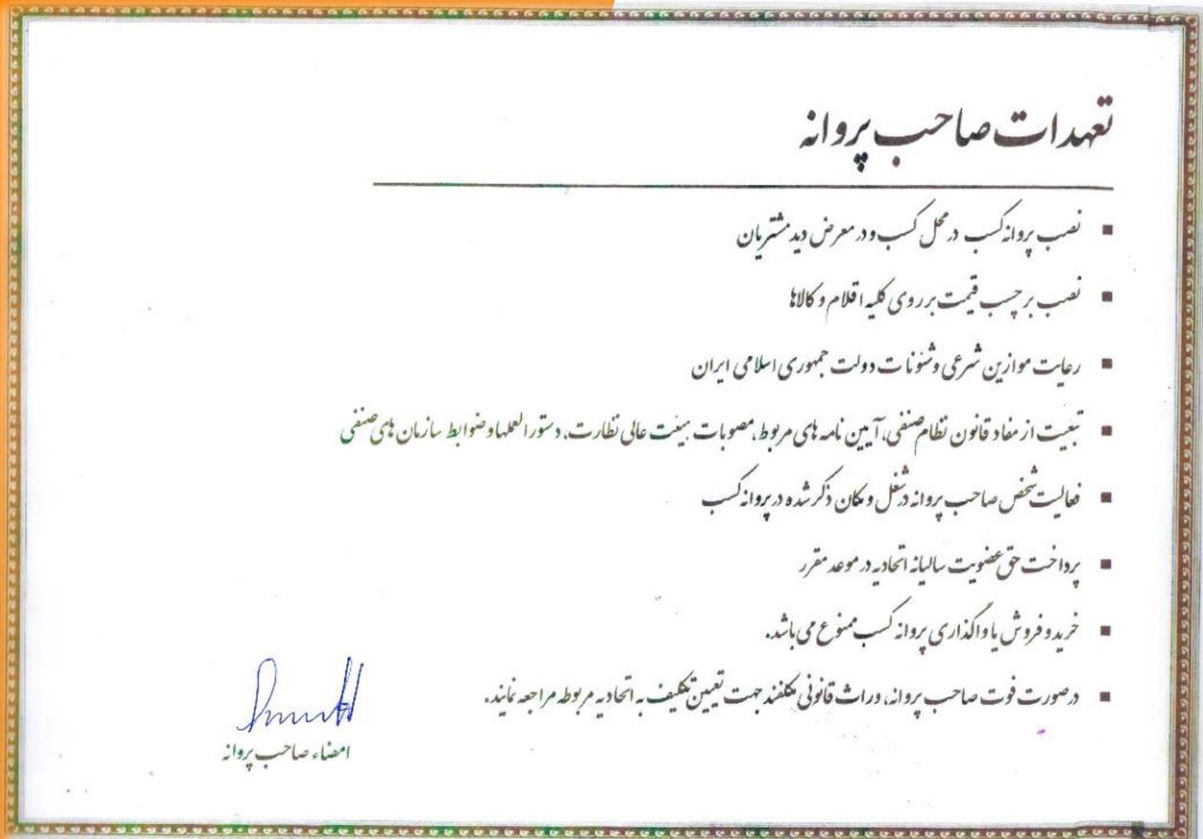 تعهدات صاحب پروانه
▪ نصب پروانه کسب در محل کسب و در معرض دید مشتریان
▪ نصب برچسب قیمت بر روی کلیه اقلام و کالاها
▪ رعایت موازین شرعی و شئونات دولت جمهوری اسلامی ایران
▪ تبعیت از مفاد قانون نظام صنفی، آیین نامه های مربوط، مصوبات هیئت عالی نظارت، دستورالعملها و ضوابط سازمان های صنفی
▪ فعالیت شخص صاحب پروانه در شغل و مکان ذکر شده در پروانه کسب
▪ پرداخت حق عضویت سالیانه اتحادیه در موعد مقرر
▪ خرید و فروش یا واگذاری پروانه کسب ممنوع می باشد.
▪ در صورت فوت صاحب پروانه، وراث قانونی مکلفند جهت تعیین تکلیف به اتحادیه مربوطه مراجعه نمایند.
امضاء صاحب پروانه